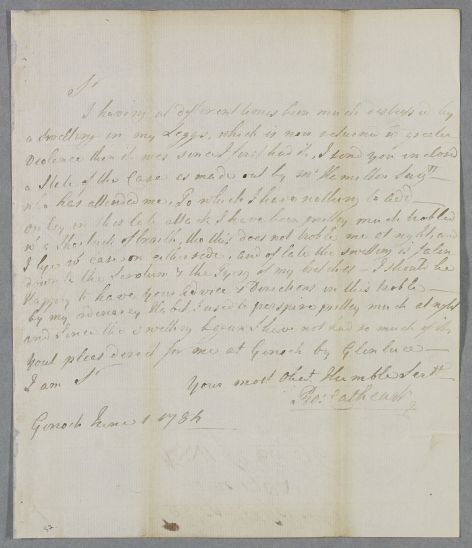 Sr
I having at different times been much distressed by
a Swelling in my Leggs, which is now returned wt greater
Violence than it was since I first had it, I send you inclosed
a State of the Case as made out by Mr Surgn
who has attended me, To which I have nothing to add
only in this late attack I have been pretty much trobled
wt a Shortness of breath, tho this does not troble me at night, and
I lye wt ease on either side, and of late the swelling is falen
down to the Scrotum & the Tying of my britches — I should be
Happy to have your advice & Directions in this troble
by my ordenary Habit I used to perspire pretty much at night
and since the swelling began I have not had so much of this
Youl pleas direct for me at Genoch by Glenluce
I am Sr
Your most Obet Humble Sert
Cathcart
Genoch June 1 1784